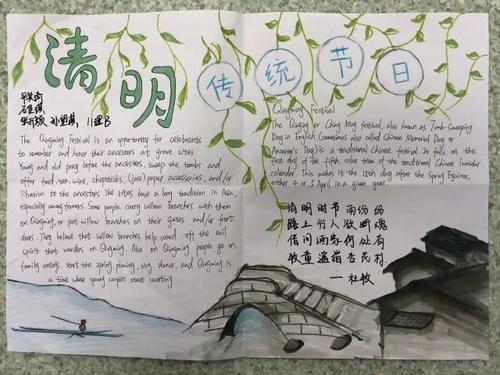 清明
传统节日
11班
The Qingming Festival is an opportunity for celebrants
to remember and honor their ancestors at grave sites
Young and old pray before the ancestors, sweep the tombs and
offer food, tea, wine, chopsticks, (joss) paper accessories, and/or
libation to the ancestors. The rites have a long tradition in Asia,
especially among farmers. Some people carry willow branches with them
on Qingming, or put willow branches on their gates and/or front
doors. They believe that willow branches help ward off the evil
spirit that wanders on Qingming. Also on Qingming people go on
family outings, start the spring plowing, sing, dance, and Qingming is
a time where young couples start courting.
Qingming Festival
The Qingming or Ching Ming festival, also known as Tomb-Sweeping
Day in English (sometimes also called Chinese Memorial Day or
Ancestors's Day) is a traditional Chinese festival. It falls on the
first day of the fifth solar term of the traditional Chinese lunisolar
calendar. This makes it the 15th day after the Spring Equinox,
either 4 or 5 April in a given year.
清明时节雨纷纷
路上行人欲断魂
借问酒家何处有
牧童遥指杏花村
—杜牧